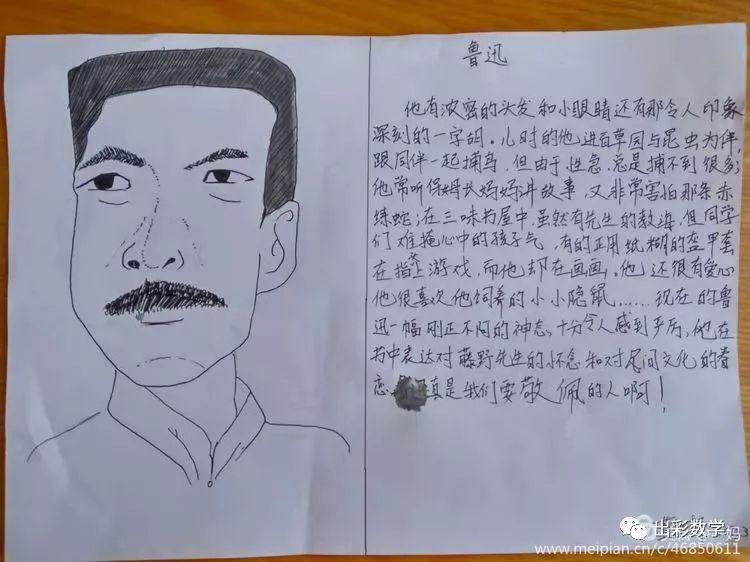 鲁迅
他有浓密的头发和小眼睛还有那令人印象
深刻的一字胡。儿时的他进百草园与昆虫为伴,
跟同伴一起捕鸟,但由于性急,总是捕不到很多;
他常听保姆长妈妈讲故事,又非常害怕那条赤
练蛇;在三味书屋中,虽然有先生的教诲,但同学
们难掩心中的孩子气,有的正用纸糊的盔甲套
在指甲上游戏,而他却在画画。他还很有爱心
他很喜欢他饲养的小小隐鼠……现在的鲁
迅一幅刚正不阿的神态,十分令人感到严厉,他在
书中表达对藤野先生的怀念和对民间文化的眷
恋。真是我们要敬佩的人啊!
出彩数学
妈
www.meipian.cn/c/46850611
3